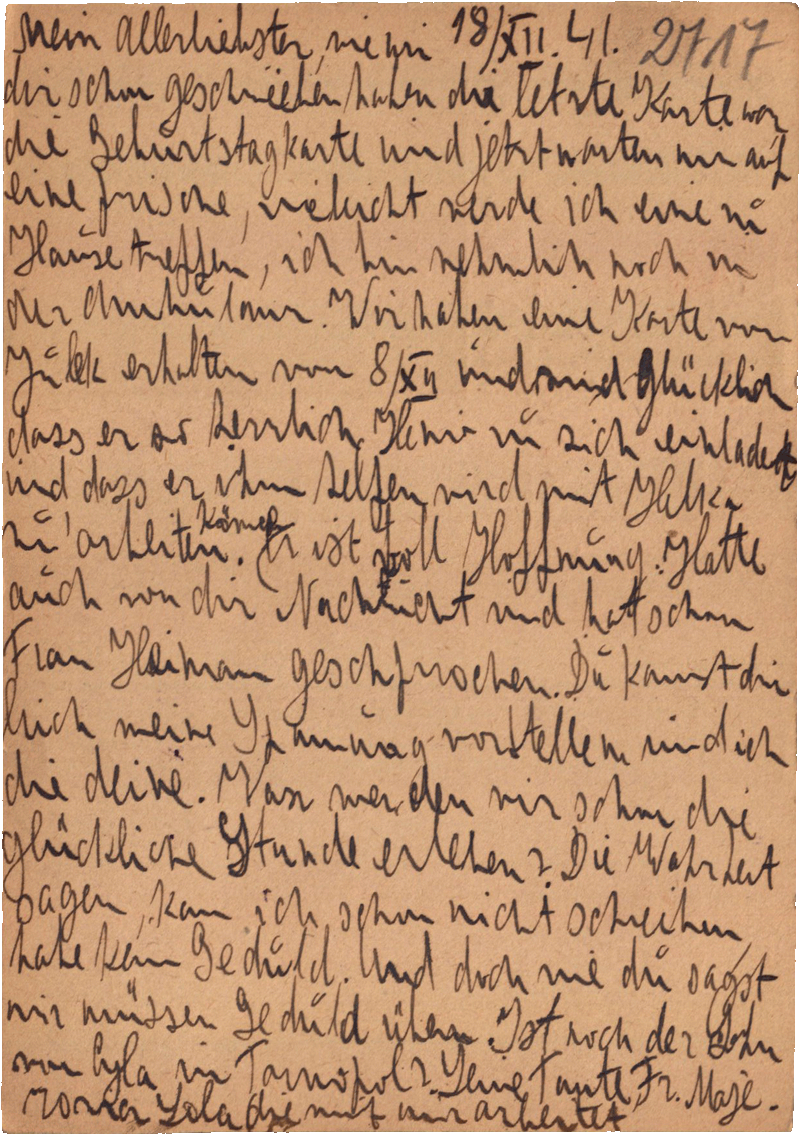 Mein Allerliebster, wie wir 18/XII. 41. 2717
dir schon geschrieben haben die letzte Karte war
die Geburtstagkarte und jetzt warten wir auf
eine frische, vieleicht werde ich eine zu
Hause treffen, ich bin nehmlich noch in
der Ambulanz. Wir haben eine Karte von
Julek erhalten vom 8/XII und sind glücklich
dass er so herrlich Henri zu sich einladet
und dass er ihm helfen wird mit Hilka
zu arbeiten. können Er ist voll Hoffnung. Hatte
auch von dir Nachricht und hat schon
Frau Heiman geschprochen. Du kanst dir
auch meine Spannung vorstellen und ich
die deine. Wan werden wir schon die
glückliche Stunde erleben? Die Wahrheit
sagen, kan ich schon nicht schreiben,
habe kein Geduld. Und doch wie du sagst
wir müssen Geduld üben. Ist noch der Sohn
von Cyla in Tarnopol? Seine Tante, Fr.
Lola die mit mir arbeitet